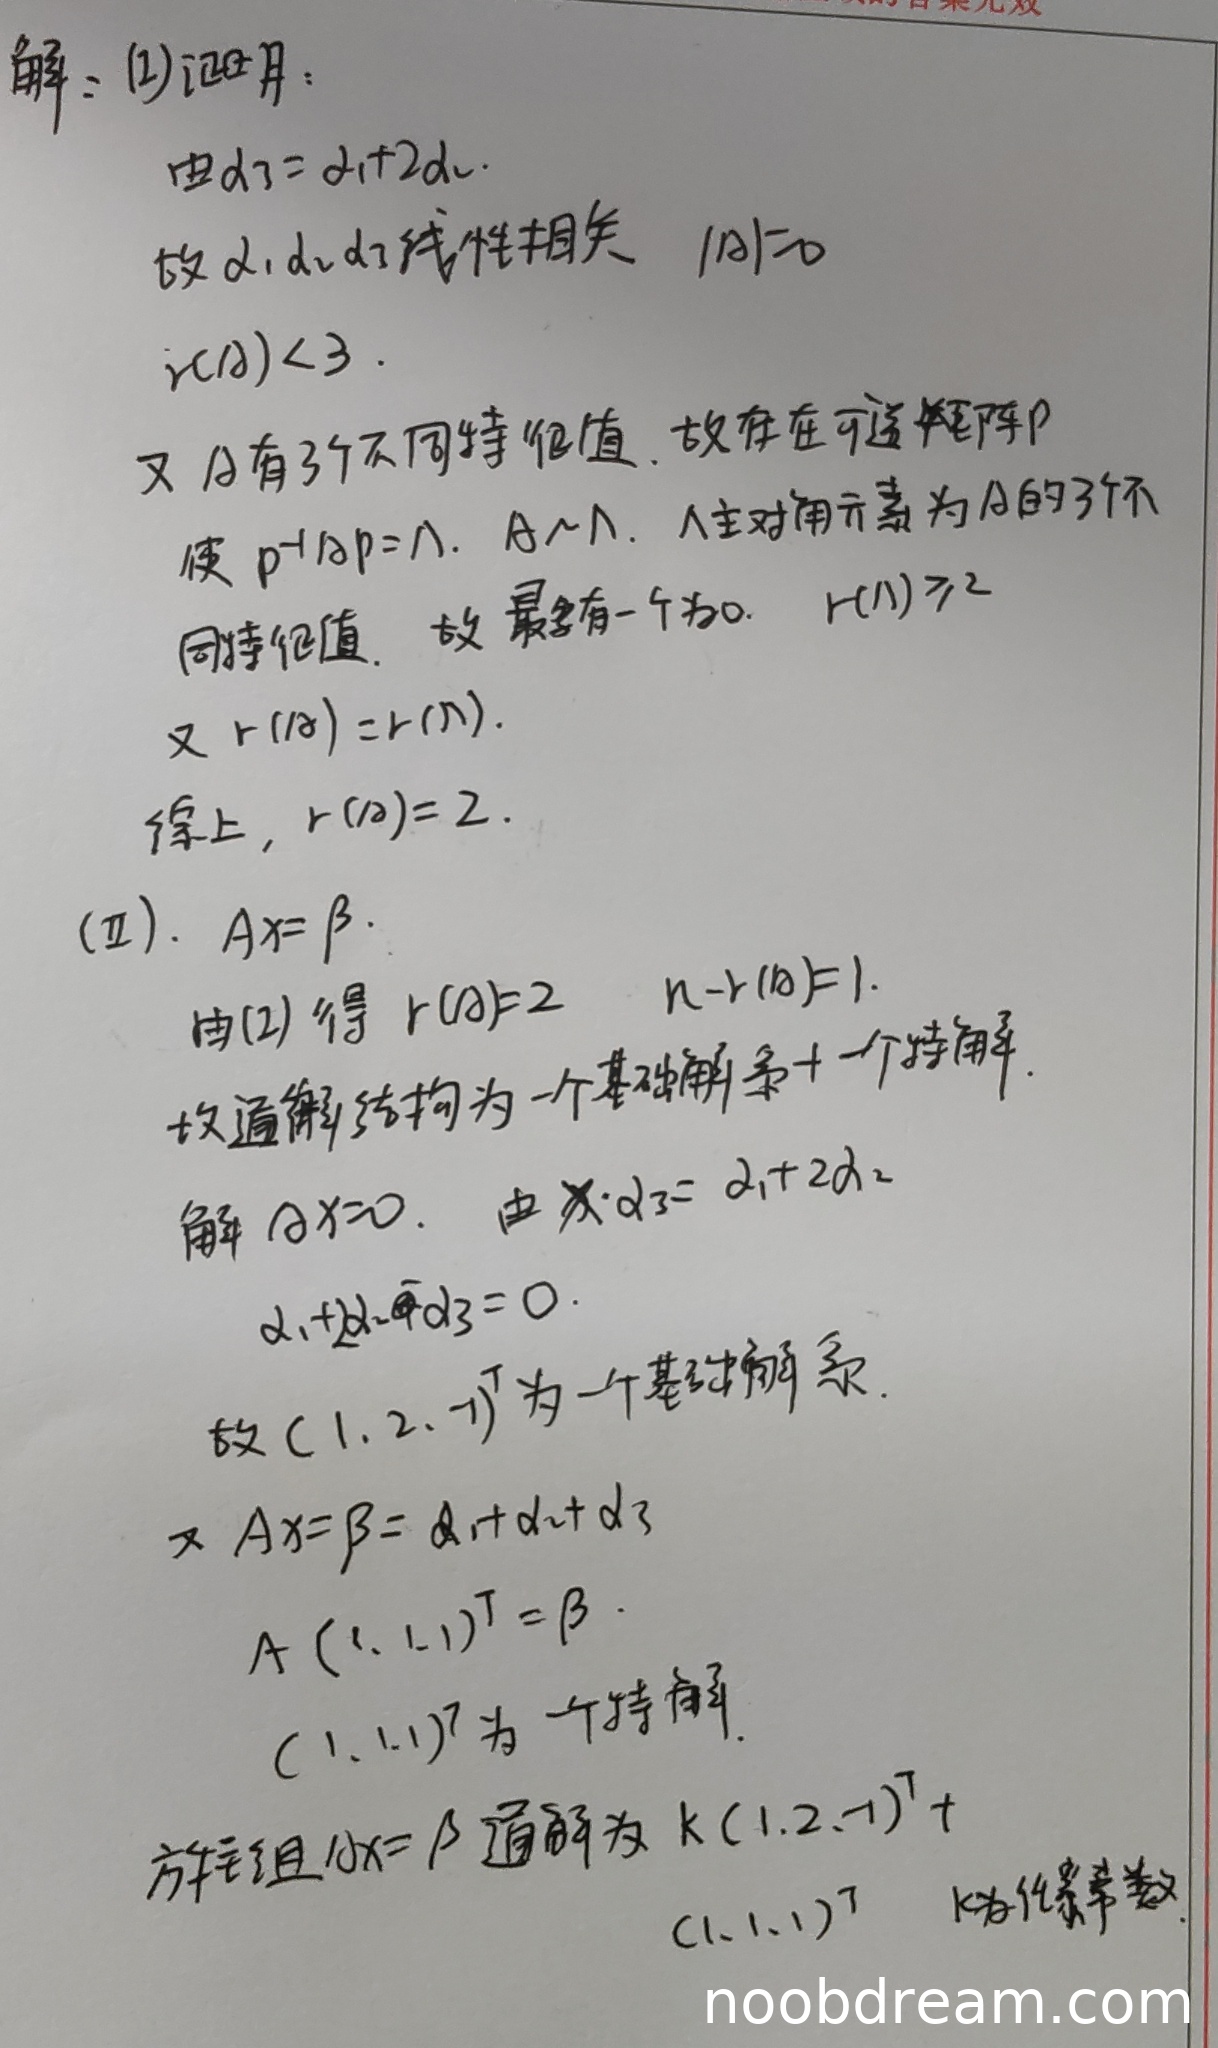 的答案无效
解:(I)证明:
由α3=α1+2α2.
故α1α2α3线性相关 |A|=0
r(A)<3.
又A有3个不同特征值.故存在可逆矩阵P
使P⁻¹AP=Λ. A~Λ. Λ主对角元素为A的3个不
同特征值. 故最多有一个为0. r(Λ)≥2
又r(A)=r(Λ).
综上,r(A)=2.
(II). Ax=β.
由(I)得 r(A)=2 n-r(A)=1.
故通解结构为一个基础解系+一个特解.
解Ax=0. 由α3=α1+2α2
α1+2α2-α3=0.
故(1.2.-1)ᵀ为一个基础解系.
又Ax=β=α1+α2+α3
A(1.1.1)ᵀ=β.
(1.1.1)ᵀ为一个特解.
方程组Ax=β通解为k(1.2.-1)ᵀ+
(1.1.1)ᵀ k为任意常数.
noobdream.com